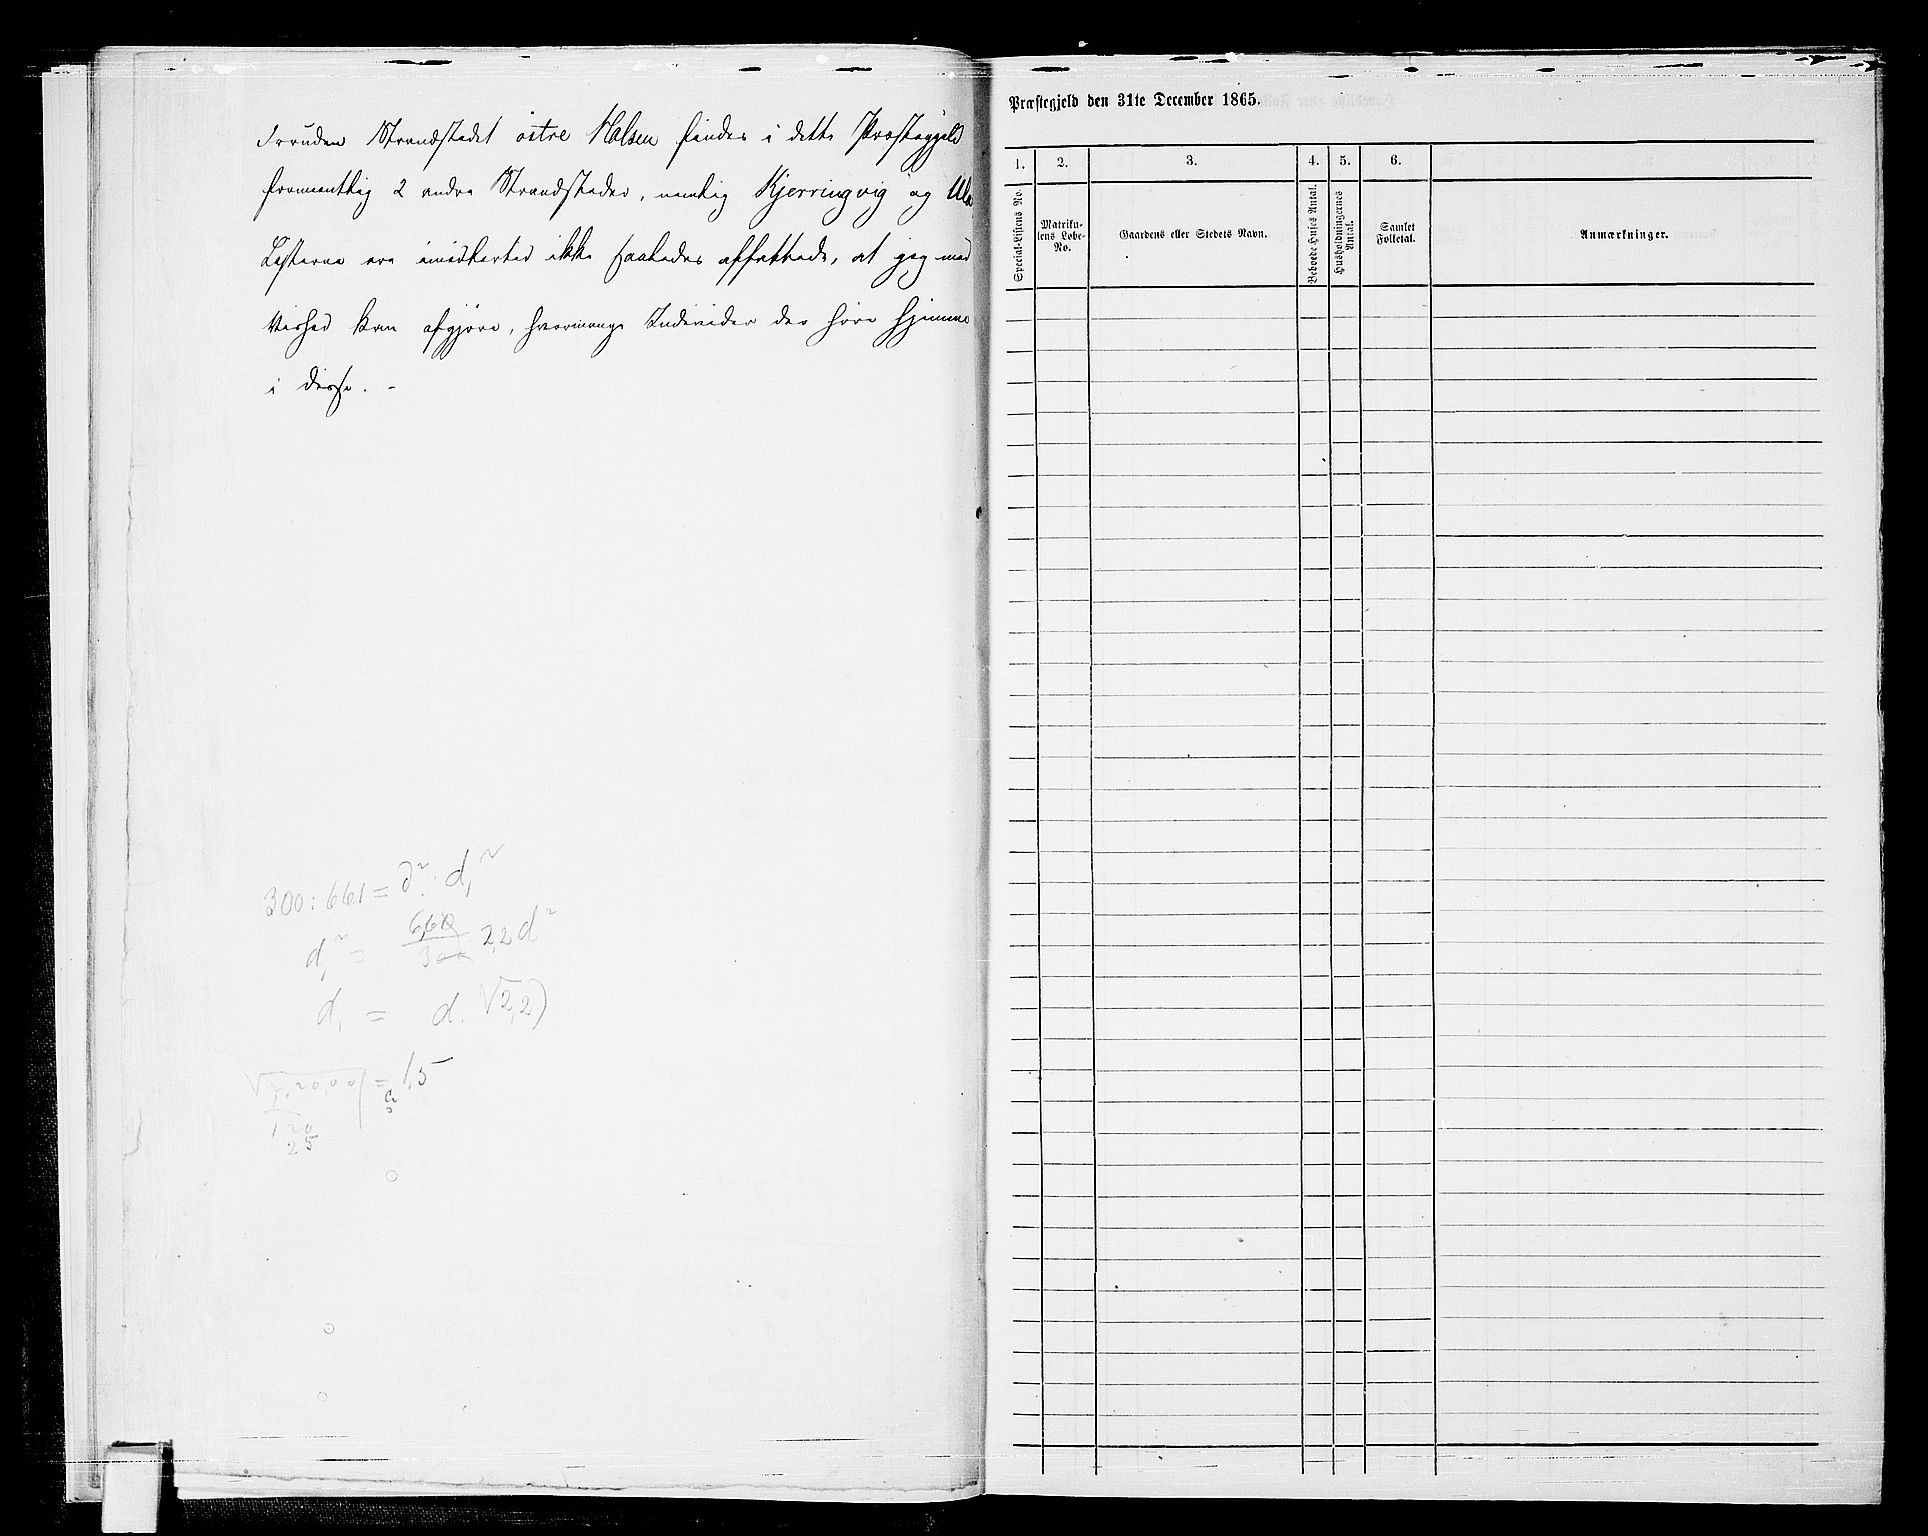 Foruden Strandstedet östre Halsen findes i dette Præstegjeld
formentlig 2 andre Strandsteder, nemlig Kjerringvig og Ula.
Listerne ere imidlertid ikke saaledes affattede, at jeg med
Vished kan afgjøre, hvormange Individer der høre hjemme
i disse. -
300 : 661 = d². d,²
d,² = 660/300 2,2 d²
d, = d. √2,2)
√2,20,00 = 1,5
120
25
Præstegjeld den 31te December 1865.
1. 2. 3. 4. 5. 6.
Special-Listens No.
Matriku-
lens Løbe-
No.
Gaardens eller Stedets Navn.
Beboede Huses Antal.
Husholdningernes
Antal.
Samlet
Folketal.
Anmærkninger.